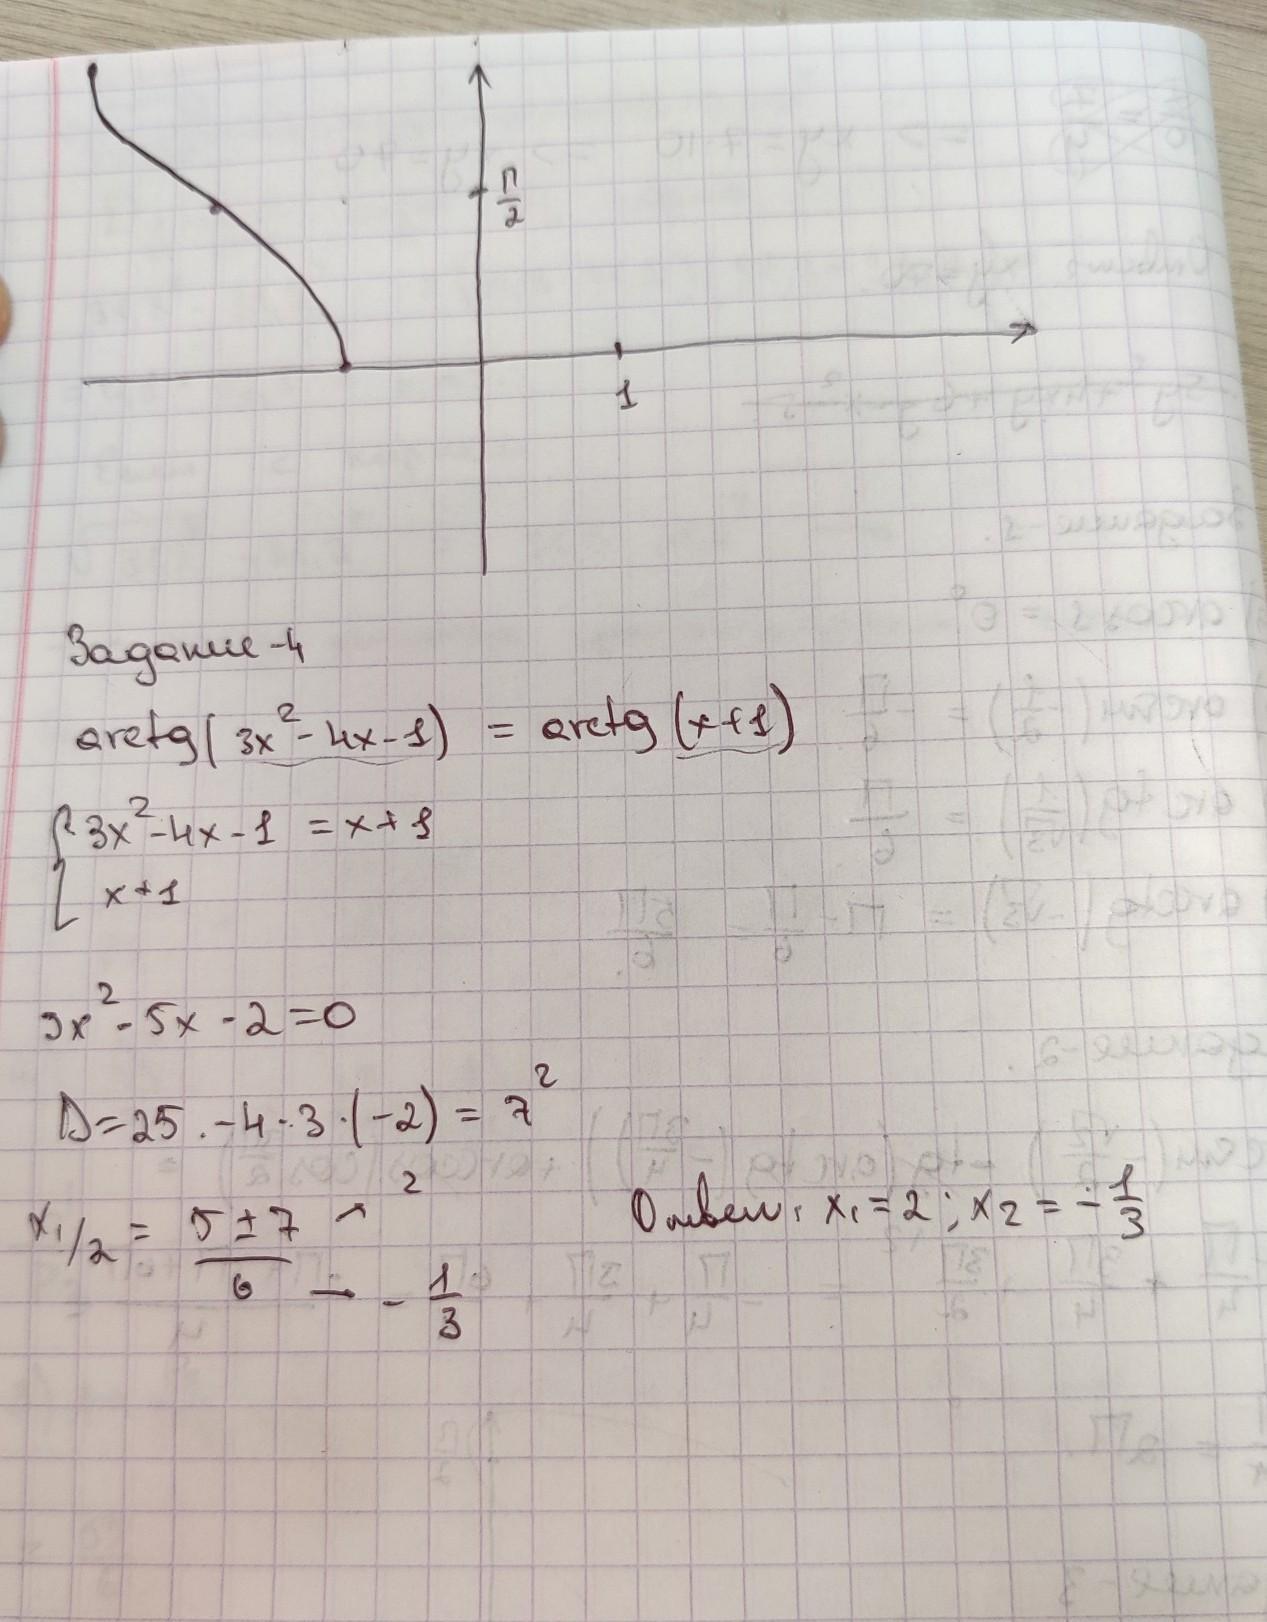 π/2
1
Задание-4
arctg(3x²-4x-1) = arctg(x+1)
{3x²-4x-1 = x+1
x+1
3x²-5x-2=0
D=25-4·3·(-2)=7²
x₁/₂ = (5±7)/6 → 2
→ -1/3
Ответ: x₁=2; x₂=-1/3